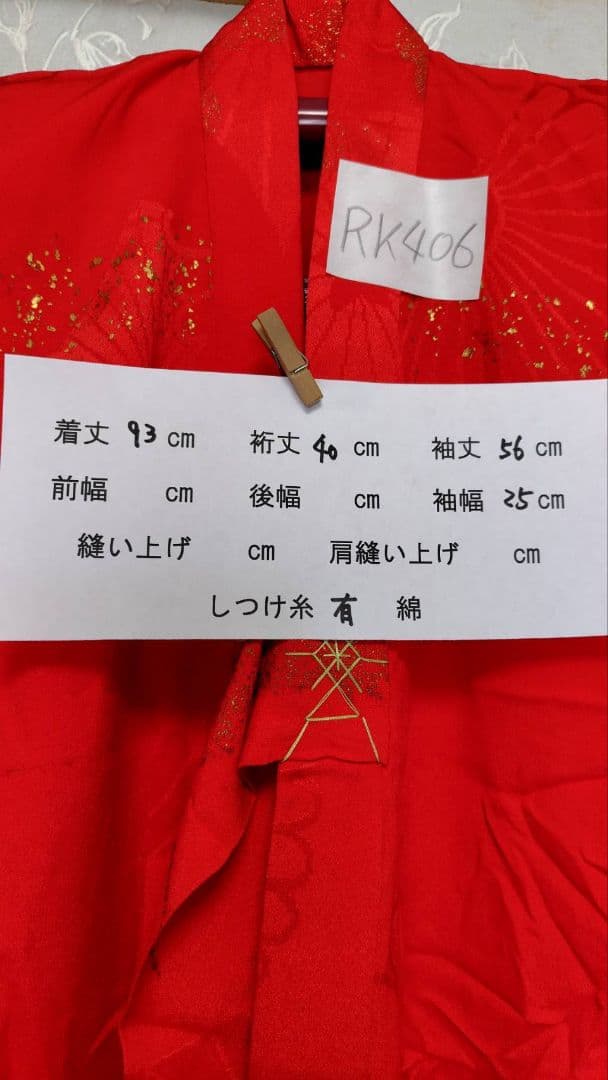 RK406
着丈 93 cm 裄丈 40 cm 袖丈 56 cm
前幅 cm 後幅 cm 袖幅 25 cm
縫い上げ cm 肩縫い上げ cm
しつけ糸 有 綿